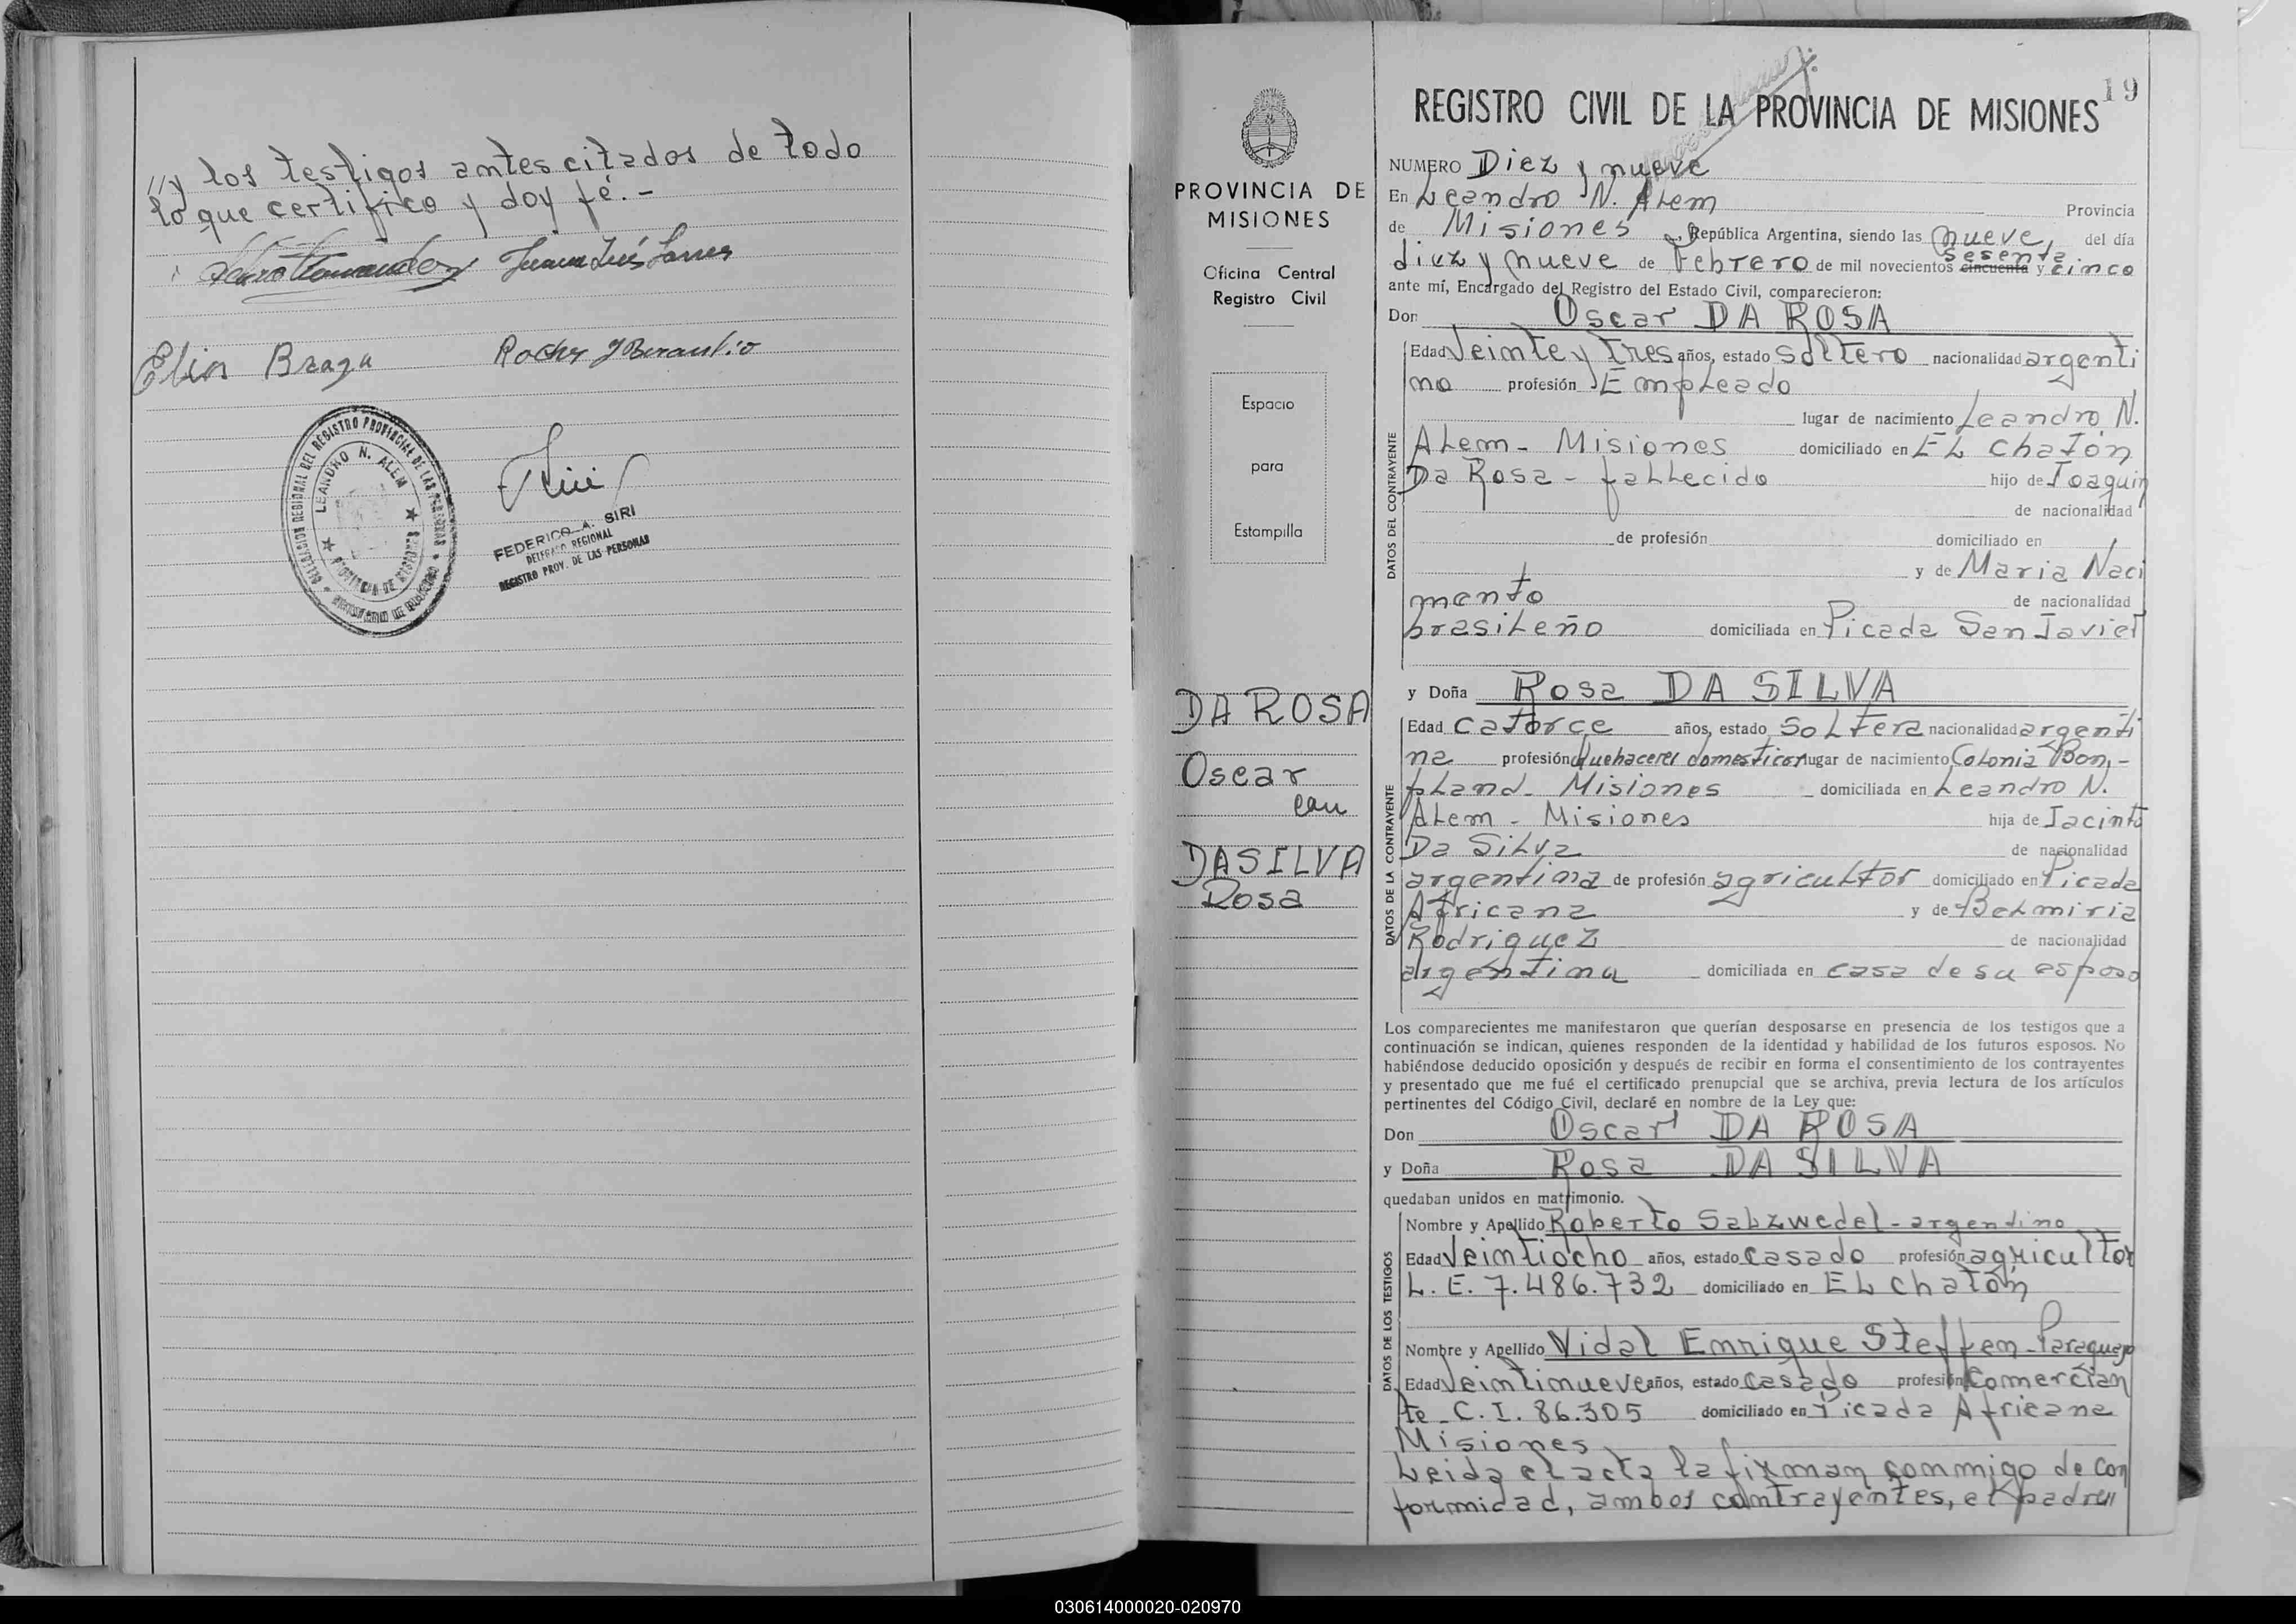 //y los testigos antes citados de todo
lo que certifico y doy fé.-
Juan Luis
Elias Braga
DELEGACION REGIONAL DEL REGISTRO PROVINCIAL DE LAS PERSONAS
LEANDRO N. ALEM
PROVINCIA DE MISIONES
FEDERICO A. SIRI
DELEGADO REGIONAL
REGISTRO PROV. DE LAS PERSONAS
PROVINCIA DE
MISIONES
Oficina Central
Registro Civil
Espacio
para
Estampilla
DA ROSA
Oscar
con
DA SILVA
Rosa
19
REGISTRO CIVIL DE LA PROVINCIA DE MISIONES
NUMERO Diez y nueve
En Leandro N. Alem Provincia
de Misiones República Argentina, siendo las nueve, del día
sesenta
diez y nueve de Febrero de mil novecientos cincuenta y cinco
ante mí, Encargado del Registro del Estado Civil, comparecieron:
Don Oscar DA ROSA
DATOS DEL CONTRAYENTE
Edad Veinte y tres años, estado soltero nacionalidad argenti
no profesión Empleado
lugar de nacimiento Leandro N.
Alem - Misiones domiciliado en EL Chatón
hijo de Joaquin
Da Rosa - fallecido
de nacionalidad
de profesión domiciliado en
y de Maria Naci
mento de nacionalidad
brasileño domiciliada en Picada San Javier
y Doña Rosa DA SILVA
DATOS DE LA CONTRAYENTE
Edad catorce años, estado soltera nacionalidad argenti
na profesión quehaceres domesticos lugar de nacimiento Colonia Bom-
pland - Misiones domiciliada en Leandro N.
Alem - Misiones hija de Jacinto
Da Silva de nacionalidad
argentina de profesión agricultor domiciliado en Picada
Africana y de Belmiria
Rodriguez de nacionalidad
argentina domiciliada en casa de su esposo
Los comparecientes me manifestaron que querían desposarse en presencia de los testigos que a
continuación se indican, quienes responden de la identidad y habilidad de los futuros esposos. No
habiéndose deducido oposición y después de recibir en forma el consentimiento de los contrayentes
y presentado que me fué el certificado prenupcial que se archiva, previa lectura de los artículos
pertinentes del Código Civil, declaré en nombre de la Ley que:
Don Oscar DA ROSA
y Doña Rosa DA SILVA
quedaban unidos en matrimonio.
DATOS DE LOS TESTIGOS
Nombre y Apellido Roberto Salzwedel - argentino
Edad Veintiocho años, estado casado profesión agricultor
L. E. 7.486.732 domiciliado en EL chatón
Nombre y Apellido Vidal Enrique Steffen - Paraguayo
Edad Veintinueve años, estado casado profesión Comercian
te - C. I. 86.305 domiciliado en Picada Africana
Misiones
Leida el acta la firman conmigo de con
formidad, ambos contrayentes, el padre//
030614000020-020970